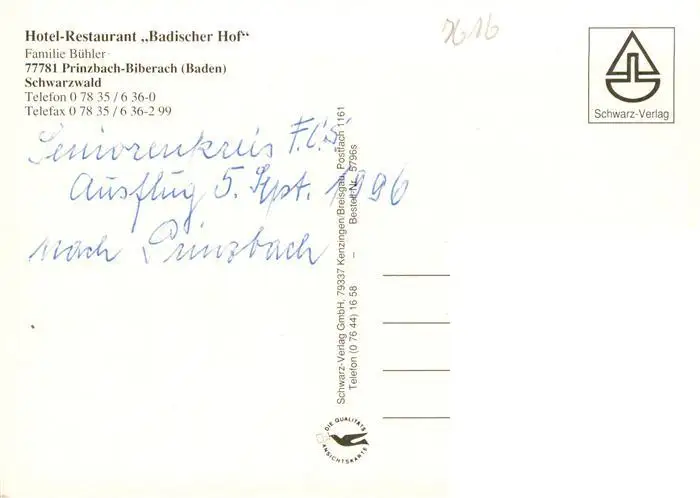 Hotel-Restaurant „Badischer Hof“
Familie Bühler
77781 Prinzbach-Biberach (Baden)
Schwarzwald
Telefon 0 78 35 / 6 36-0
Telefax 0 78 35 / 6 36-2 99
7616
Schwarz-Verlag
Seniorenkreis F.C.S.
Ausflug 5. Sept. 1996
nach Prinzbach
Schwarz-Verlag GmbH, 79337 Kenzingen/Breisgau, Postfach 1161
Telefon (0 76 44) 16 58 – Bestell-Nr. 5796s
DIE QUALITÄTS
ANSICHTSKARTE